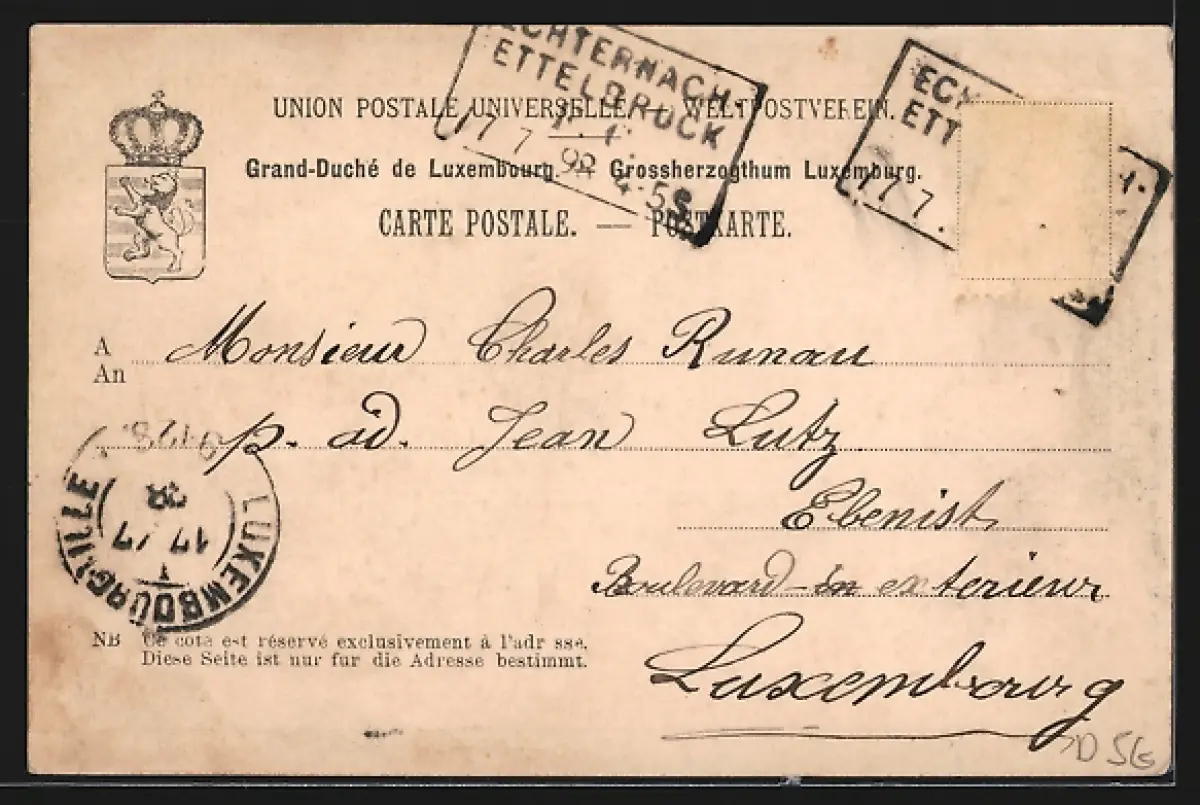 ECHTERNACH-
ETTELBRUCK
17 7 98 4-5S
ECH
ETT
17 7.
UNION POSTALE UNIVERSELLE. — WELTPOSTVEREIN.
Grand-Duché de Luxembourg. — Grossherzogthum Luxemburg.
CARTE POSTALE. — POSTKARTE.
A Monsieur Charles Runau
An
p. ad. Jean Lutz
Ebenist
Boulevard - in exterieur
Luxembourg
LUXEMBOURG-VILLE
17 7
98
NB Ce coté est réservé exclusivement à l'adr sse.
Diese Seite ist nur fur die Adresse bestimmt.